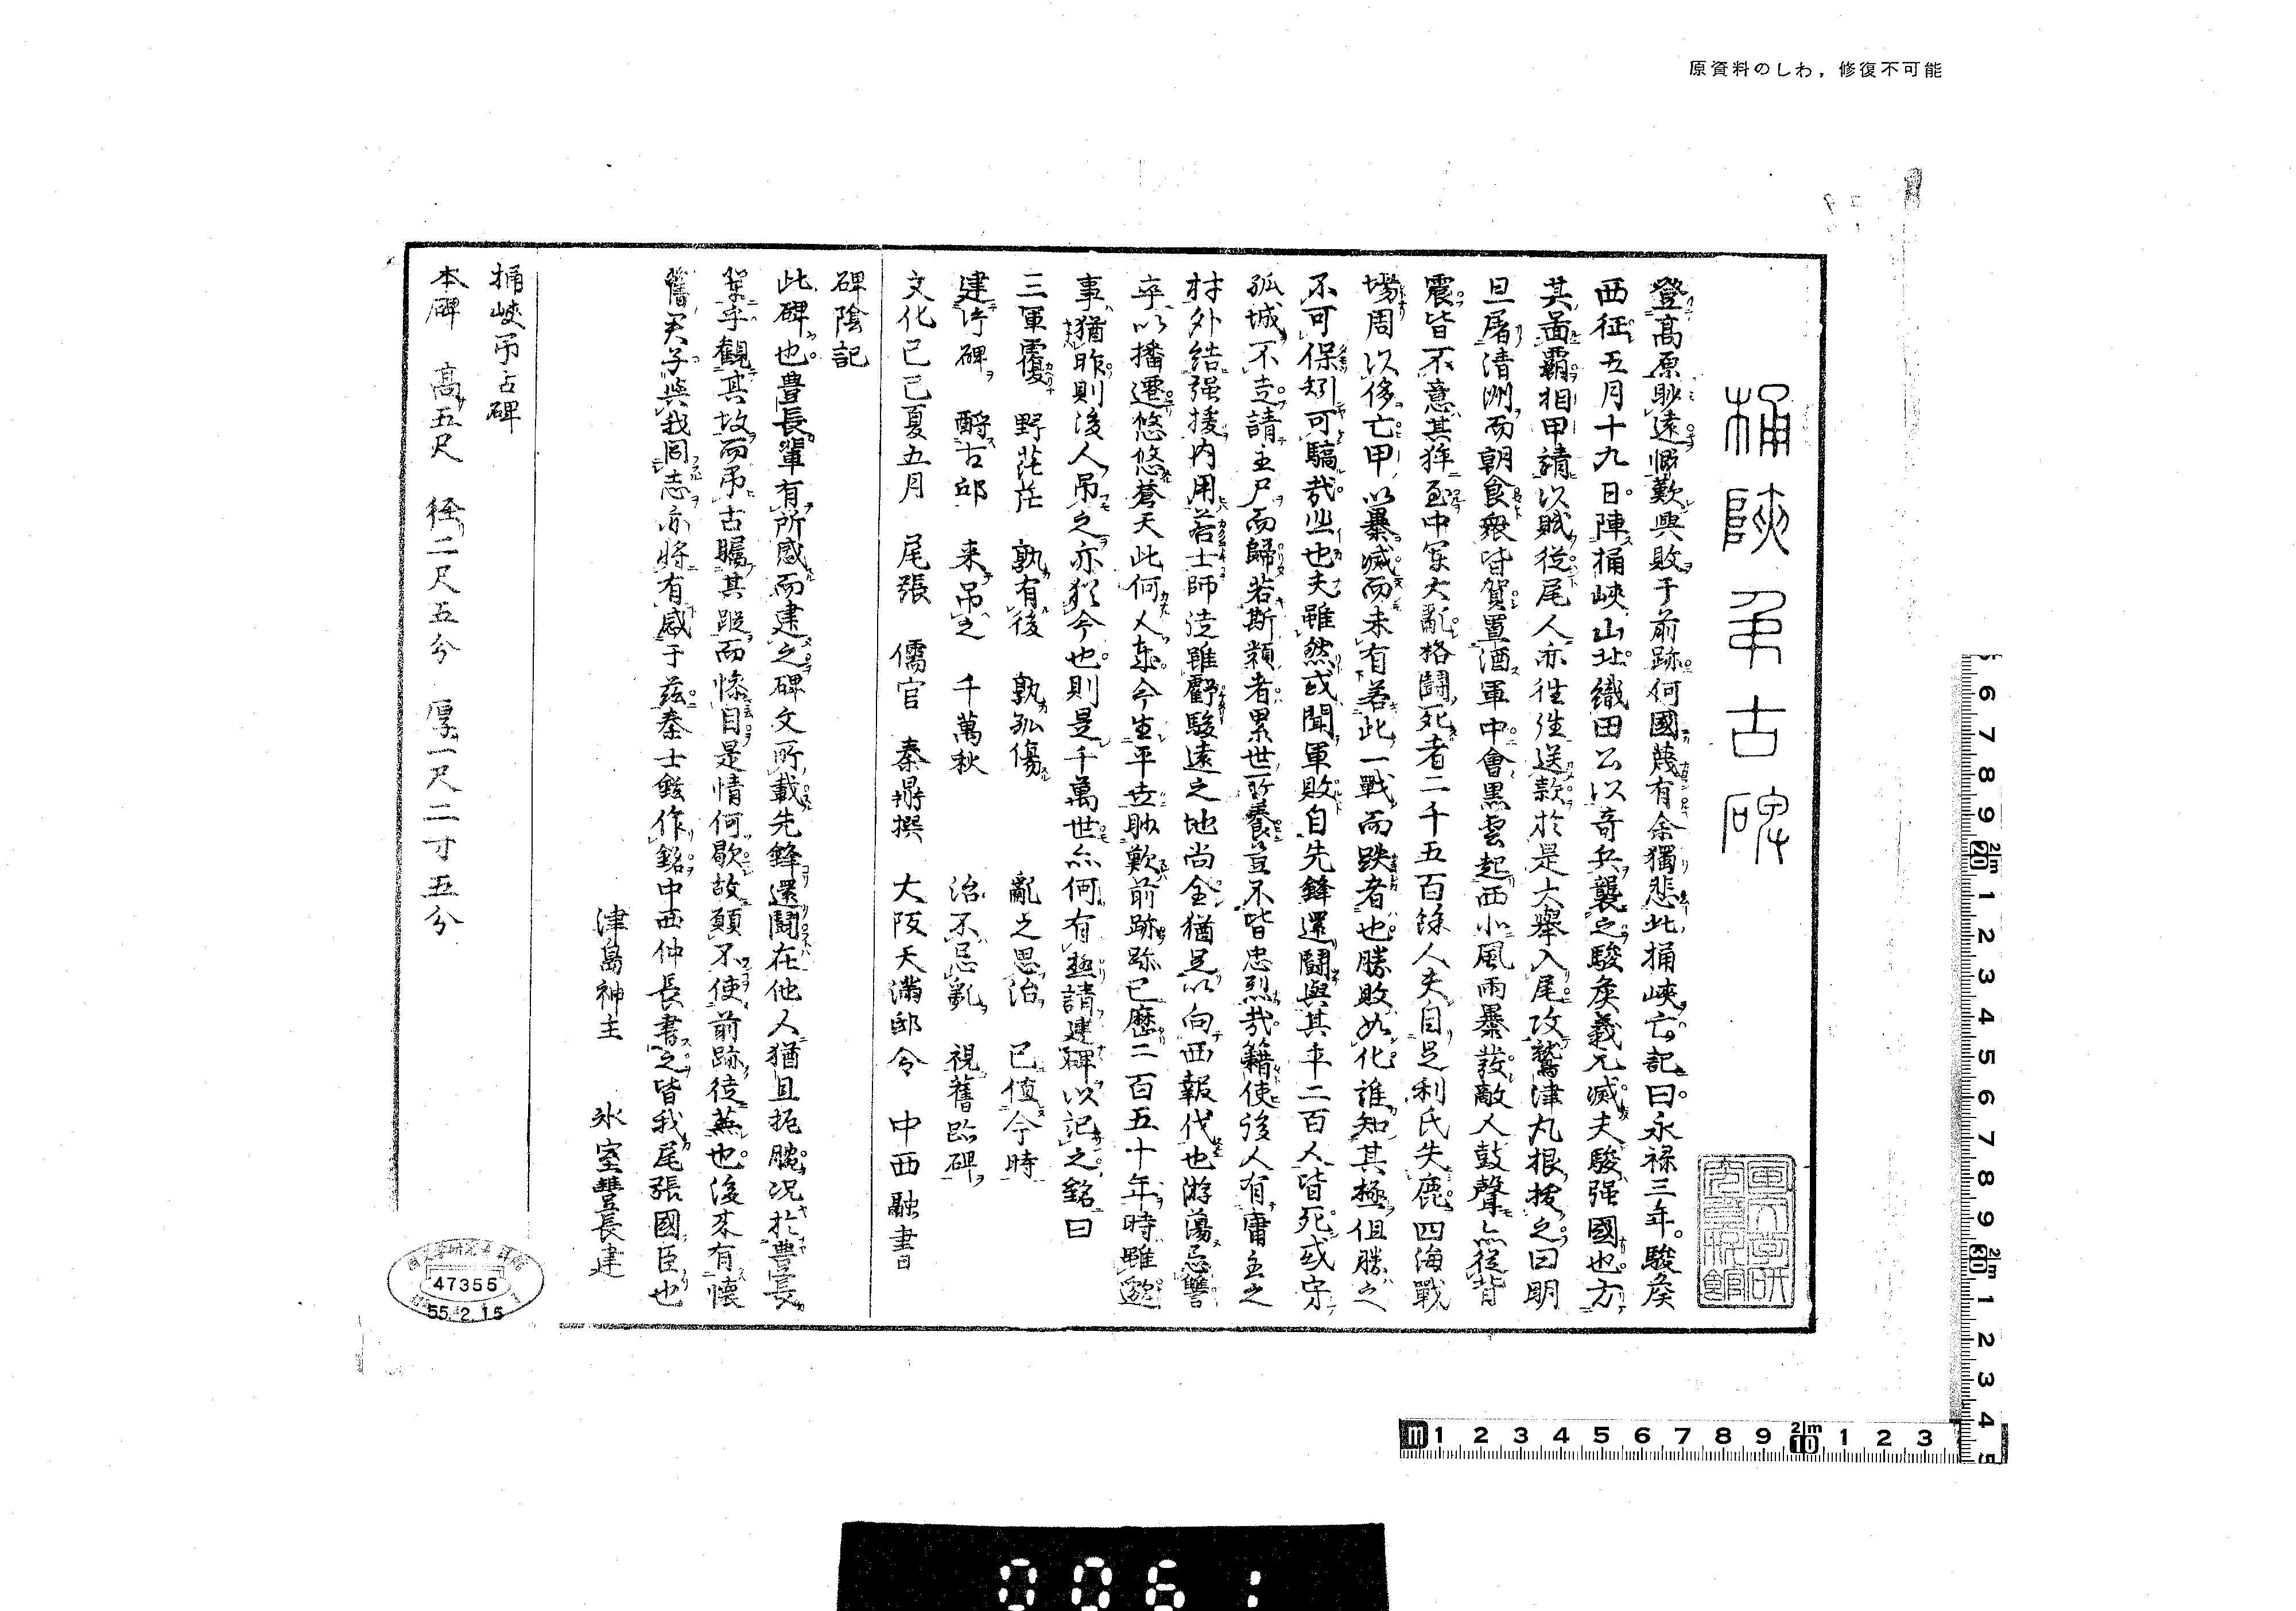 原資料のしわ，修復不可能
桶陿弔古碑
登高原眇遠慨歎興敗于前跡何國蔑有余獨悲此桶峽亡記曰永禄三年駿矦
西征五月十九日陣桶峽山北織田公以奇兵襲之駿矦義元滅夫駿强國也方
其啚霸相甲請以賊從尾人亦往往送款於是大舉入尾攻鷲津丸根拔之曰明
旦屠清洲而朝食衆皆賀置酒軍中會黒雲起西北風雨暴發敵人鼓聲亦從背
震皆不意其猝至中軍大亂格鬪死者二千五百餘人夫自足利氏失鹿四海戰
場周以侈亡甲以暴滅而未有若此一戰而跌者也勝敗如化誰知其極但勝之
不可保矧可驕哉也夫雖然或聞軍敗自先鋒還鬪與其卒二百人皆死或守
孤城不走請主尸而歸若斯類者累世所養豈不皆忠烈哉籍使後人有庸主之
材外結强援内用若士師徒雖虧駿遠之地尚全猶足以向西報伐也游蕩忘讐
卒以播遷悠悠蒼天此何人哉今生平世眇歎前跡跡已歴二百五十年時雖邈
事猶昨則後人弔之亦猶今也則是千萬世亦何有與請建碑以記之銘曰
三軍覆　野茫茫　孰有後　孰弘傷　亂之思治　已値今時
建片碑　酹古邱　来弔之　千萬秋　治不忘亂　視舊跡碑
文化己巳夏五月　尾張　儒官　秦鼎撰　大阪天滿邸令　中西融書
碑陰記
此碑也豊長輩有所感而建之碑文所載先鋒還鬪在他人猶且扼腕况於豊長
輩乎觀其故而弔古矚其蹤而慘目是情何歇故願不使前跡徒蕪也後來有懷
舊君子與我同志亦將有感于兹秦士鉉作銘中西仲長書之皆我尾張國臣也
津島神主　氷室豐長建
桶峽弔古碑
本碑　高五尺　径二尺五分　厚一尺二寸五分
47355
55.2.15
0061